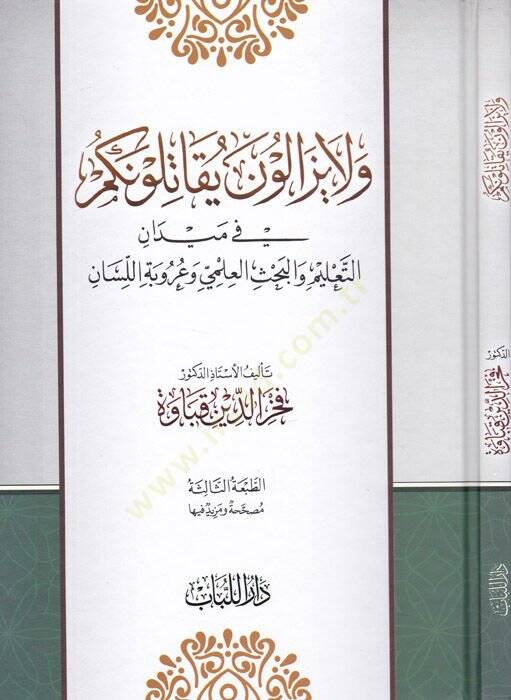 ولا يزالون يقاتلونكم
في ميدان
التعليم والبحث العلمي وعروبة اللسان
تأليف الأستاذ الدكتور
فخر الدين قباوة
الطبعة الثالثة
مصححة ومزيد فيها
دار اللباب
ولا يزالون يقاتلونكم
الدكتور
فخر الدين قباوة
دار اللباب